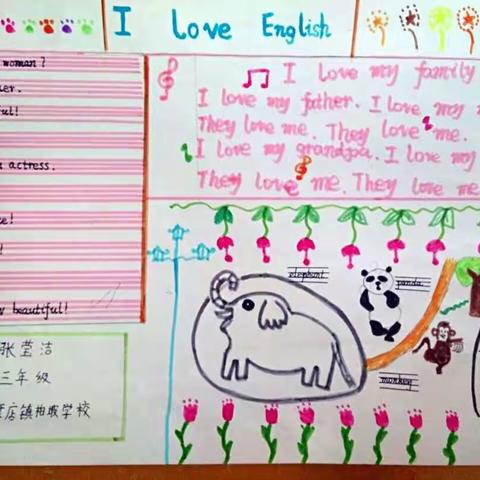 I love English
woman?
ful!
actress.
beautiful!
张莹洁
三年级
店镇 学校
I love my family
I love my father. I love my
They love me. They love me.
I love my grandpa. I love my
They love me. They love me.
elephant
panda
monkey